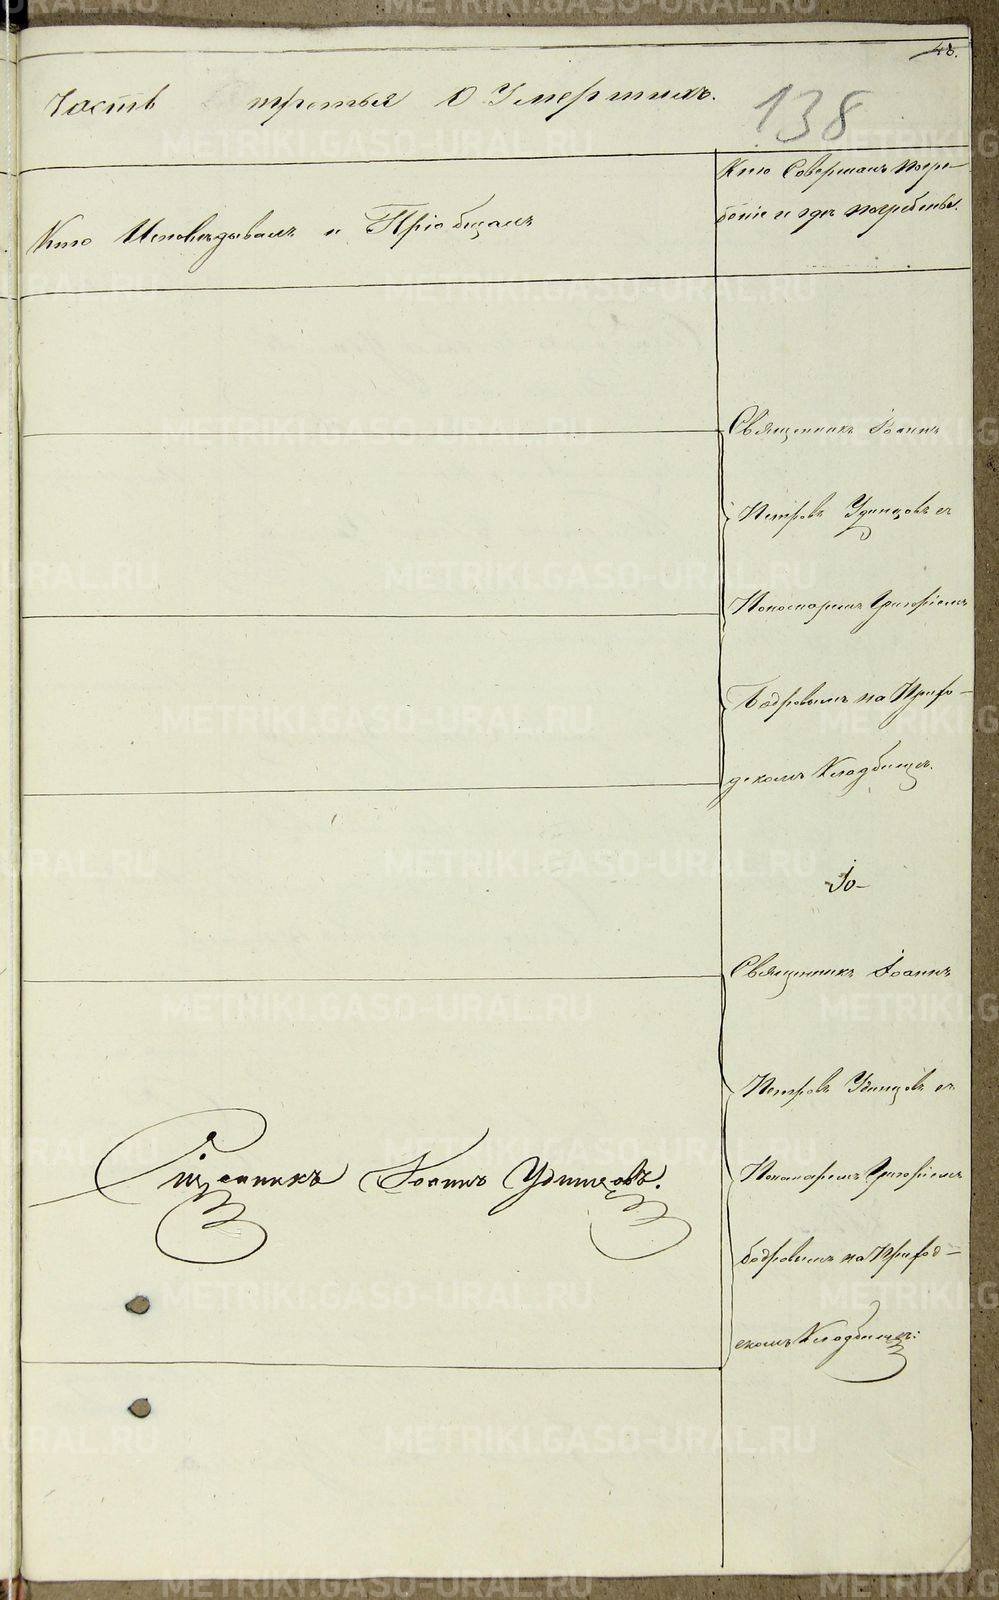 48.
Часть третья О Умершихъ.
138
Кто Исповѣдывалъ и Пріобщалъ
Кто Совершалъ погре-
беніе и гдѣ погребены.
Священникъ Іоаннъ
Петровъ Удинцовъ съ
Пономаремъ Григоріемъ
Бодровымъ на Прихо-
дскомъ Кладбищѣ.
Священникъ Іоаннъ
Петровъ Удинцовъ съ
Пономаремъ Григоріемъ
Бодровымъ на Приход-
скомъ Кладбищѣ:
Сщенникъ Іоаннъ Удинцовъ.
METRIKI.GASO-URAL.RU